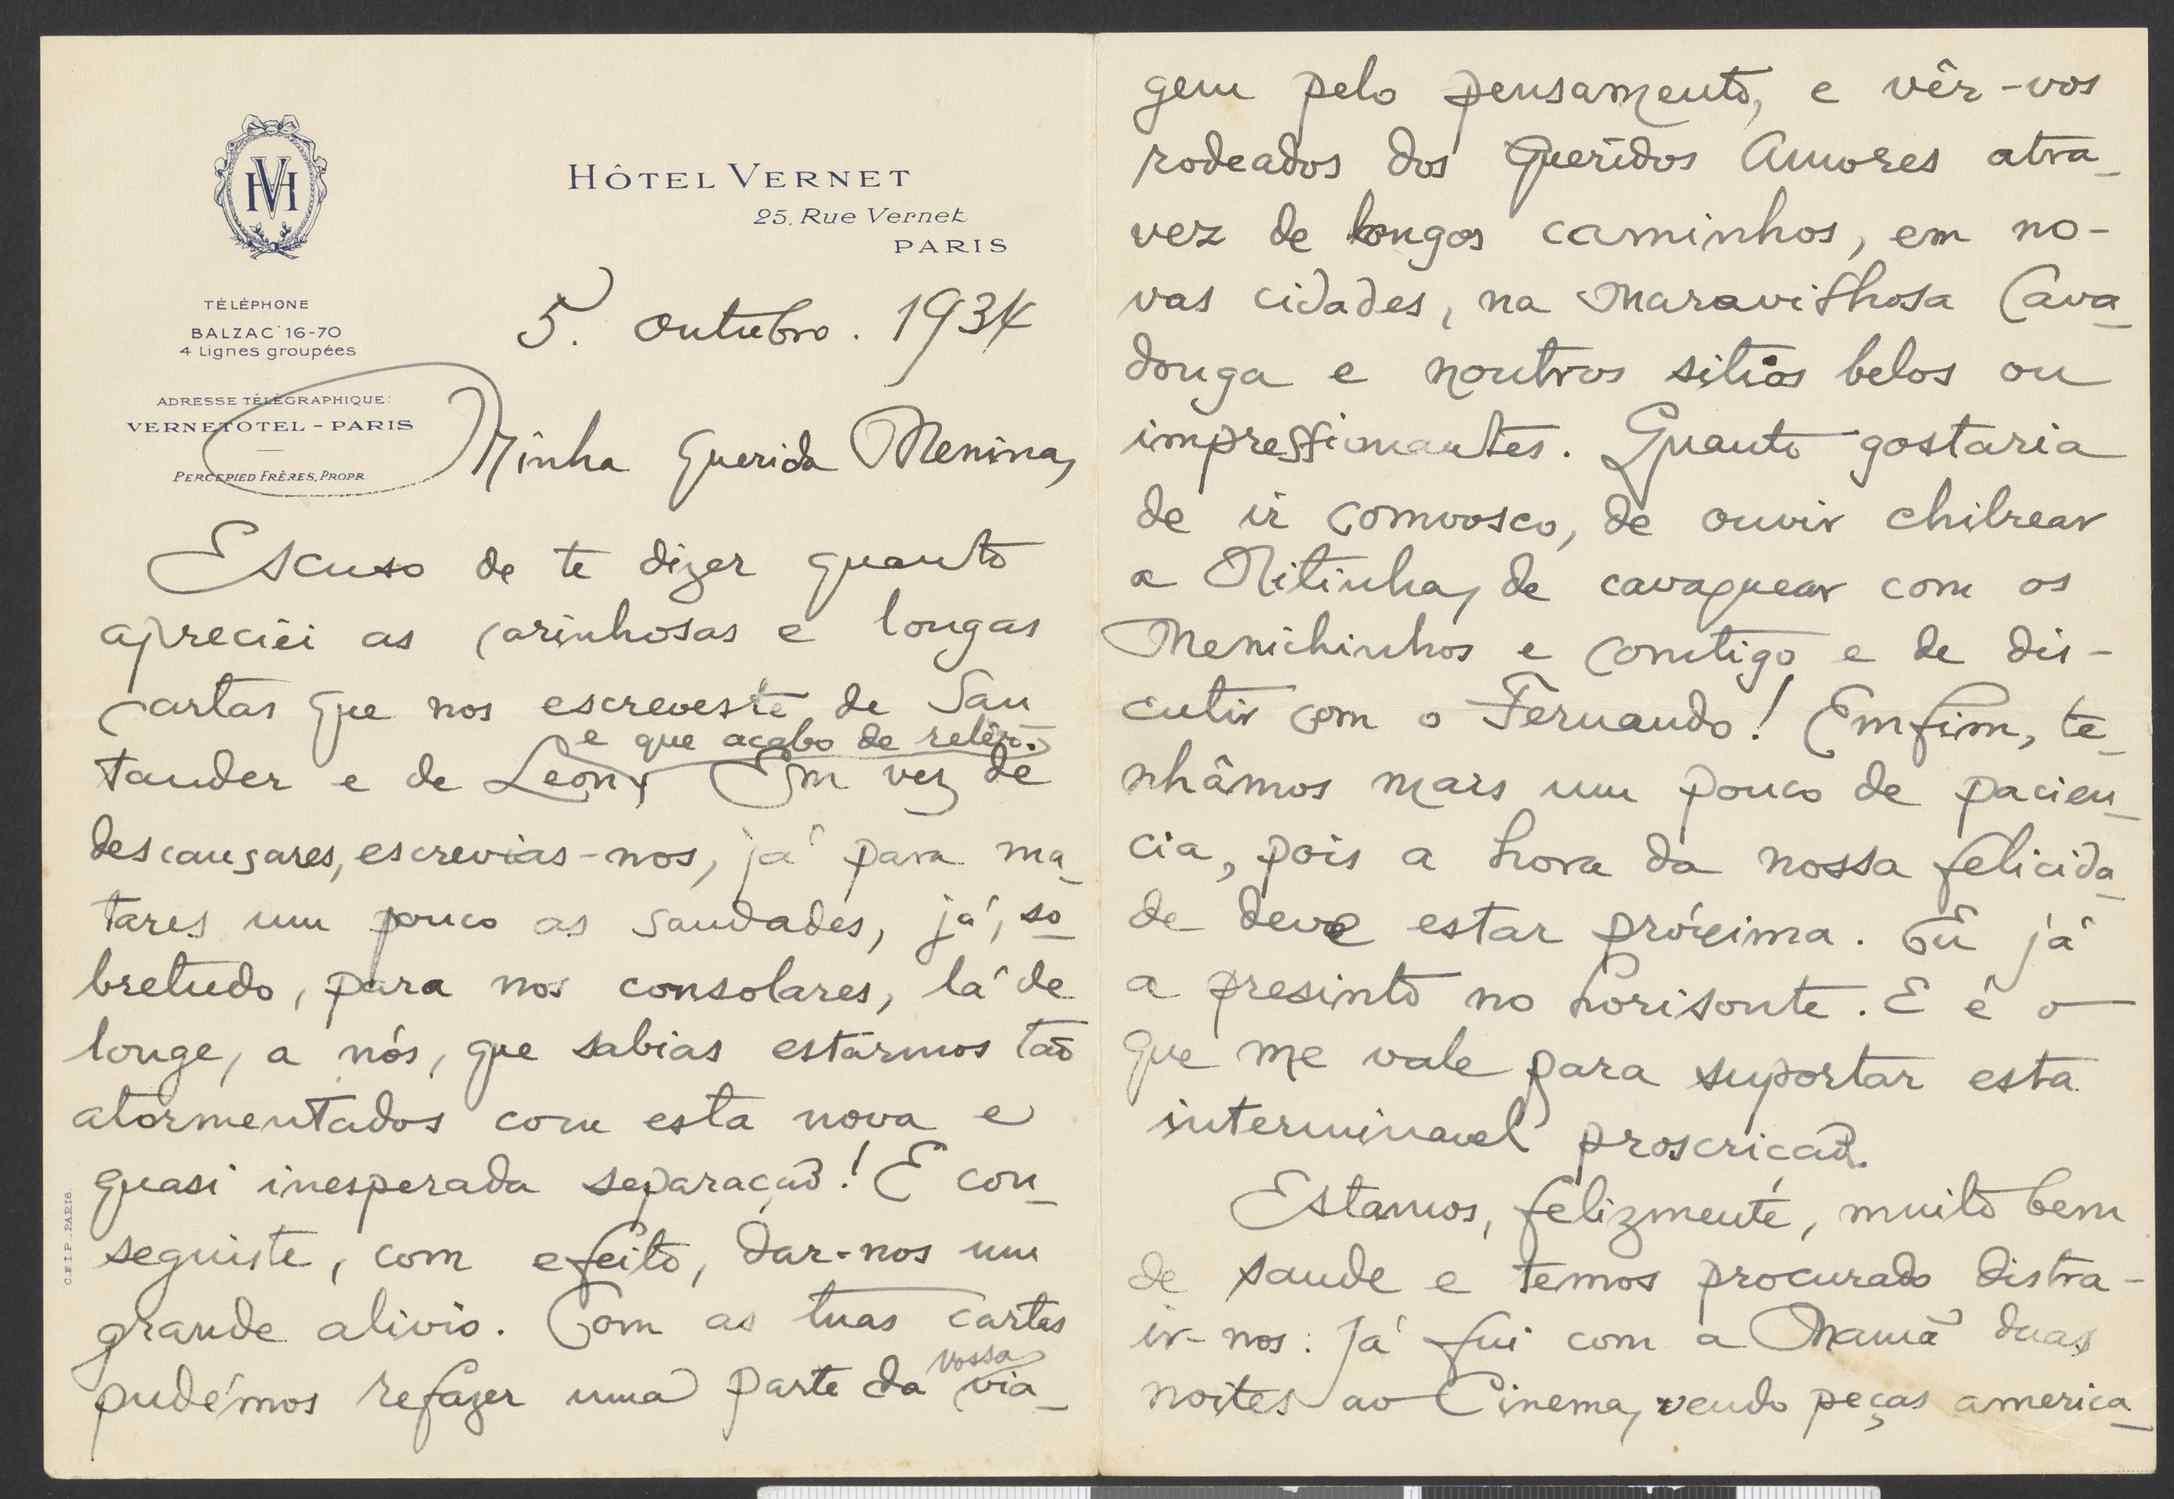 HVM
HÔTEL VERNET
25, Rue Vernet
PARIS
TÉLÉPHONE
BALZAC 16-70
4 Lignes groupées
ADRESSE TÉLÉGRAPHIQUE:
VERNETOTEL - PARIS
PERCEPIED FRÈRES, PROPR
5. outubro. 1934
Minha Querida Menina,
Escuso de te dizer quanto
apreciei as carinhosas e longas
cartas que nos escreveste de San-
e que acabo de relêr.
tander e de Leon. Em vez de
descançares, escrevias-nos, já para ma-
tares um pouco as saudades, já, so-
bretudo, para nos consolares, lá de
longe, a nós, que sabias estarmos tão
atormentados com esta nova e
quasi inesperada separação! E con-
seguiste, com efeito, dar-nos um
grande alivio. Com as tuas cartas
pudémos refazer uma parte da vossa via-
C.E.I.P. PARIS.
gem pelo pensamento, e vêr-vos
rodeados dos Queridos Amores atra-
vez de longos caminhos, em no-
vas cidades, na maravilhosa Cava-
donga e noutros sitios belos ou
impressionantes. Quanto gostaria
de ir comvosco, de ouvir chilrear
a Ritinha, de cavaquear com os
Menichinhos e comtigo e de dis-
cutir com o Fernando! Emfim, te-
nhâmos mais um pouco de pacien-
cia, pois a hora da nossa felicida-
de deve estar próxima. Eu já
a presinto no horisonte. E é o
que me vale para suportar esta
interminavel proscrição.
Estamos, felizmente, muito bem
de saude e temos procurado distra-
ir-nos: Já fui com a Mamã duas
noites ao Cinema, vendo peças america-